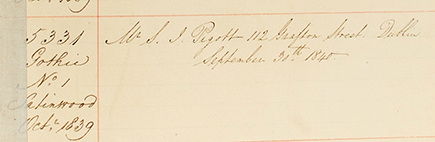 5331
Gothic
No. 1
Satinwood
Octr. 1839
Mr. S. J. Pigott 112 Grafton Street Dublin
September 30th 1840